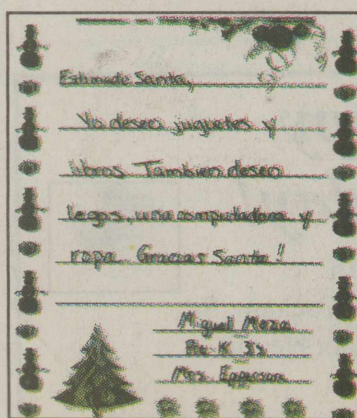 Estimado Santa,
Yo deseo juguetes y
libros Tambien deseo
legos, una computadora y
ropa. Gracias Santa!!
Miguel Meza
Pre-K 3s
Mrs.